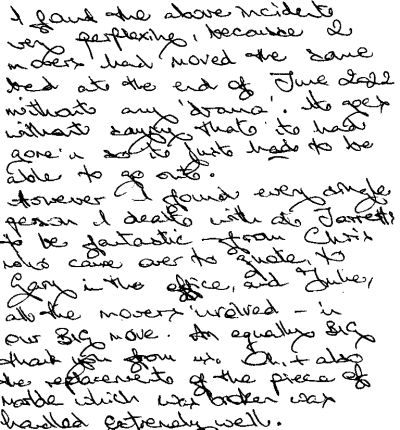 I found the above incident
very perplexing, because 2
movers had moved the same
bed at the end of June 2022
without any 'drama'. It goes
without saying that it had
gone in so it just had to be
able to go out.
However I found every single
person I dealt with at Jarretts
to be fantastic - from Chris
who came over to quote, to
Gary in the office, and Julie,
all the movers involved - in
our BIG move. An equally BIG
thank you from us. Oh, + also
the replacement of the piece of
marble which was broken was
handled extremely well.